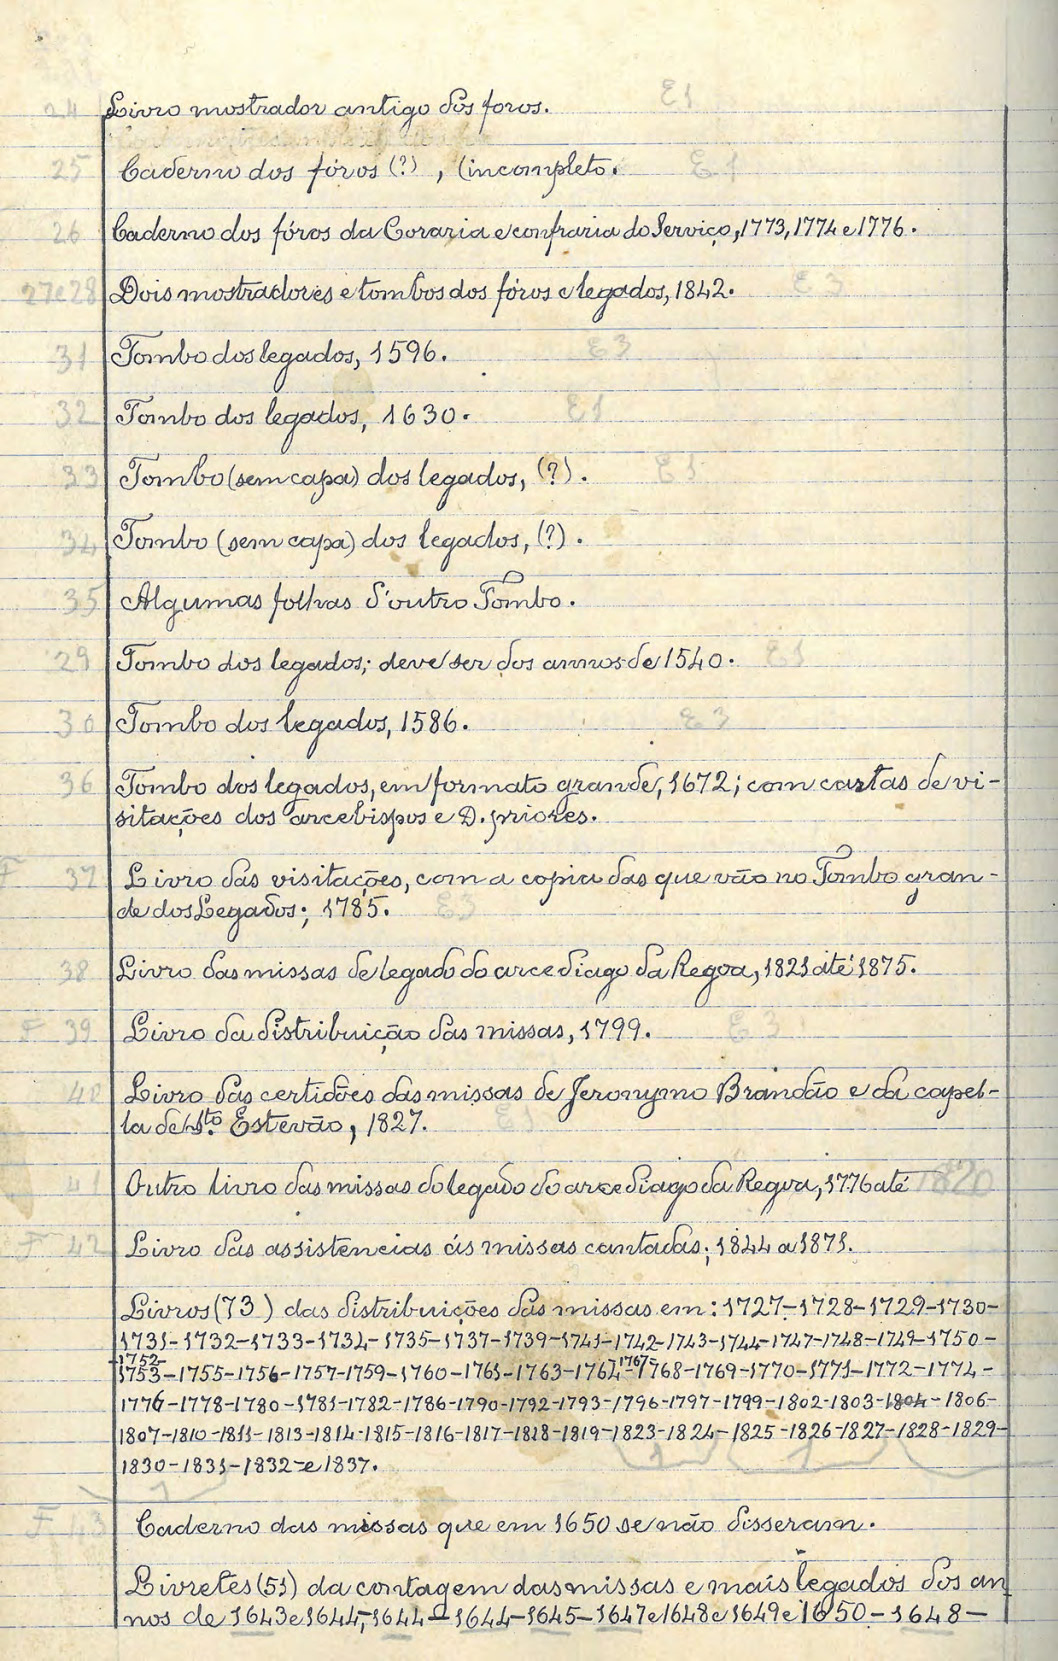 24 Livro mostrador antigo dos foros. E1
25 Caderno dos fóros (?) , (incompleto. E1
26 Caderno dos fóros da Coraria e confraria do Serviço, 1773, 1774 e 1776.
27 e 28 Dois mostradores e tombos dos fóros e legados, 1842. E3
31 Tombo dos legados, 1596. E3
32 Tombo dos legados, 1630. E1
33 Tombo (sem capa) dos legados, (?). E1
34 Tombo (sem capa) dos legados, (?).
35 Algumas folhas d'outro Tombo.
29 Tombo dos legados; deve ser dos annos de 1540. E1
30 Tombo dos legados, 1586. E3
36 Tombo dos legados, em formato grande, 1672; com cartas de vi-
sitações dos arcebispos e D. priores.
F 37 Livro das visitações, com a copia das que vão no Tombo gran-
de dos Legados; 1785. E3
38 Livro das missas de legado do arcediago da Regoa, 1821 até 1875.
F 39 Livro da distribuição das missas, 1799. E3
40 Livro das certidões das missas de Jeronymo Brandão e da capel-
la de Sto. Estevão, 1827. E1
41 Outro livro das missas do legado do arcediago da Regoa, 1776 até 1820
F 42 Livro das assistencias ás missas cantadas; 1844 a 1871.
Livros (73) das distribuições das missas em: 1727-1728-1729-1730-
1731-1732-1733-1734-1735-1737-1739-1741-1742-1743-1744-1747-1748-1749-1750-
1752-
1753-1755-1756-1757-1759-1760-1761-1763-1764-1767-1768-1769-1770-1771-1772-1774-
1776-1778-1780-1781-1782-1786-1790-1792-1793-1796-1797-1799-1802-1803-1804-1806-
1807-1810-1811-1813-1814-1815-1816-1817-1818-1819-1823-1824-1825-1826-1827-1828-1829-
1830-1831-1832-e 1837.
F 43 Caderno das missas que em 1650 se não disseram.
Livretes (51) da contagem das missas e mais legados dos an
nos de 1643 e 1644, 1644-1644-1645-1647 e 1648 e 1649 e 1650-1648-